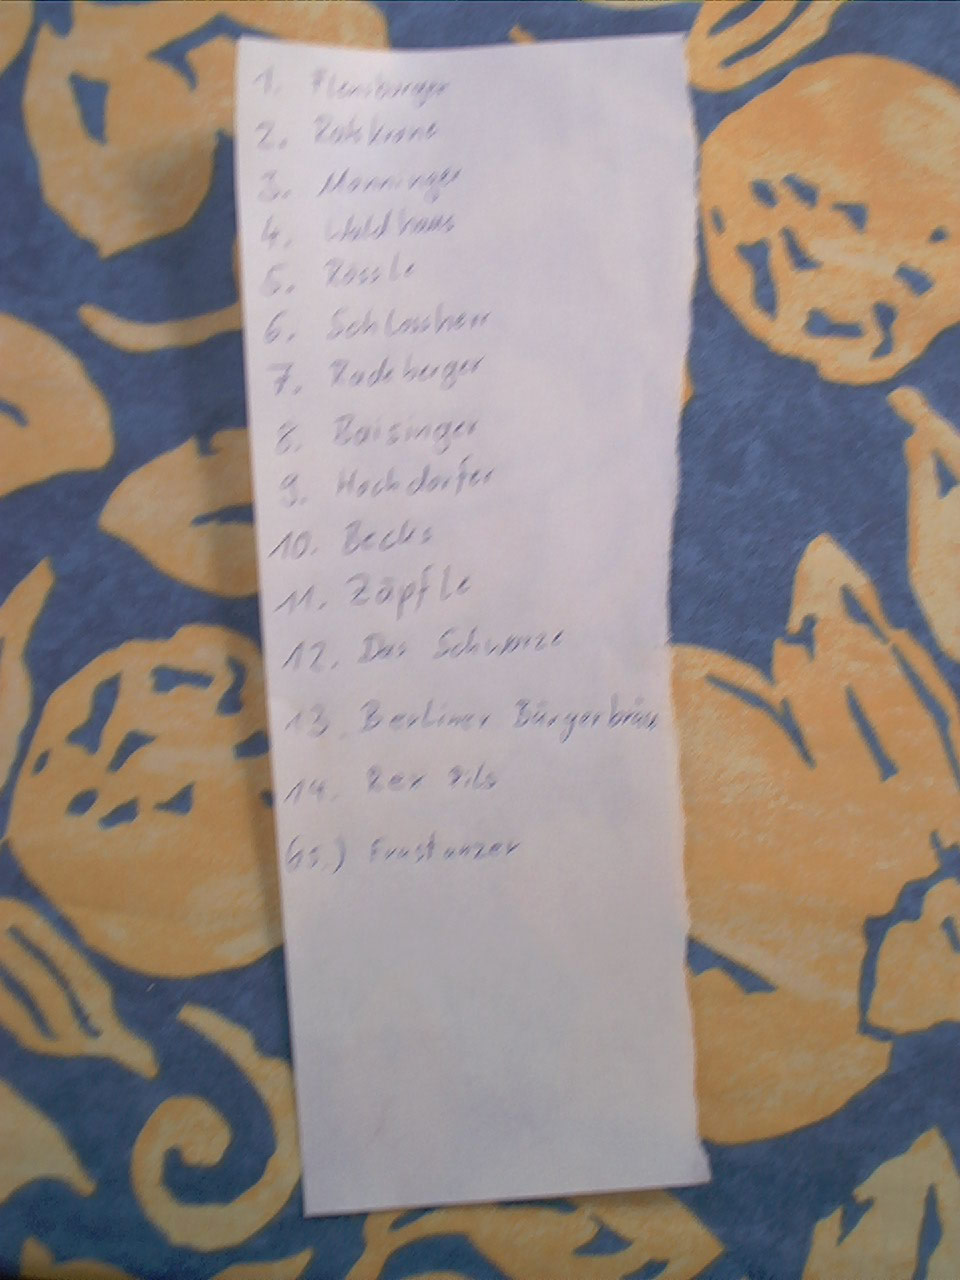 1. Flensburger
2. Ratskrone
3. Monninger
4. Waldhaus
5. Rössle
6. Schlossherr
7. Radeberger
8. Baisinger
9. Hochdorfer
10. Becks
11. Zäpfle
12. Das Schwarze
13. Berliner Bürgerbräu
14. Rex Pils
15.) Frastanzer